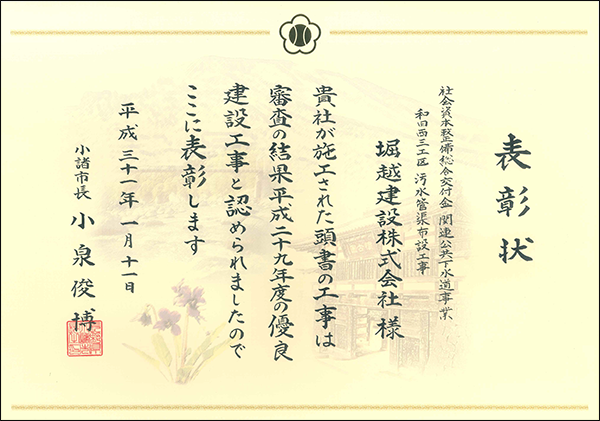 表彰状
社会資本整備総合交付金 関連公共下水道事業
和田西三工区 汚水管渠布設工事
堀越建設株式会社 様
貴社が施工された頭書の工事は
審査の結果平成二十九年度の優良
建設工事と認められましたので
ここに表彰します
平成三十一年一月十一日
小諸市長 小泉俊博